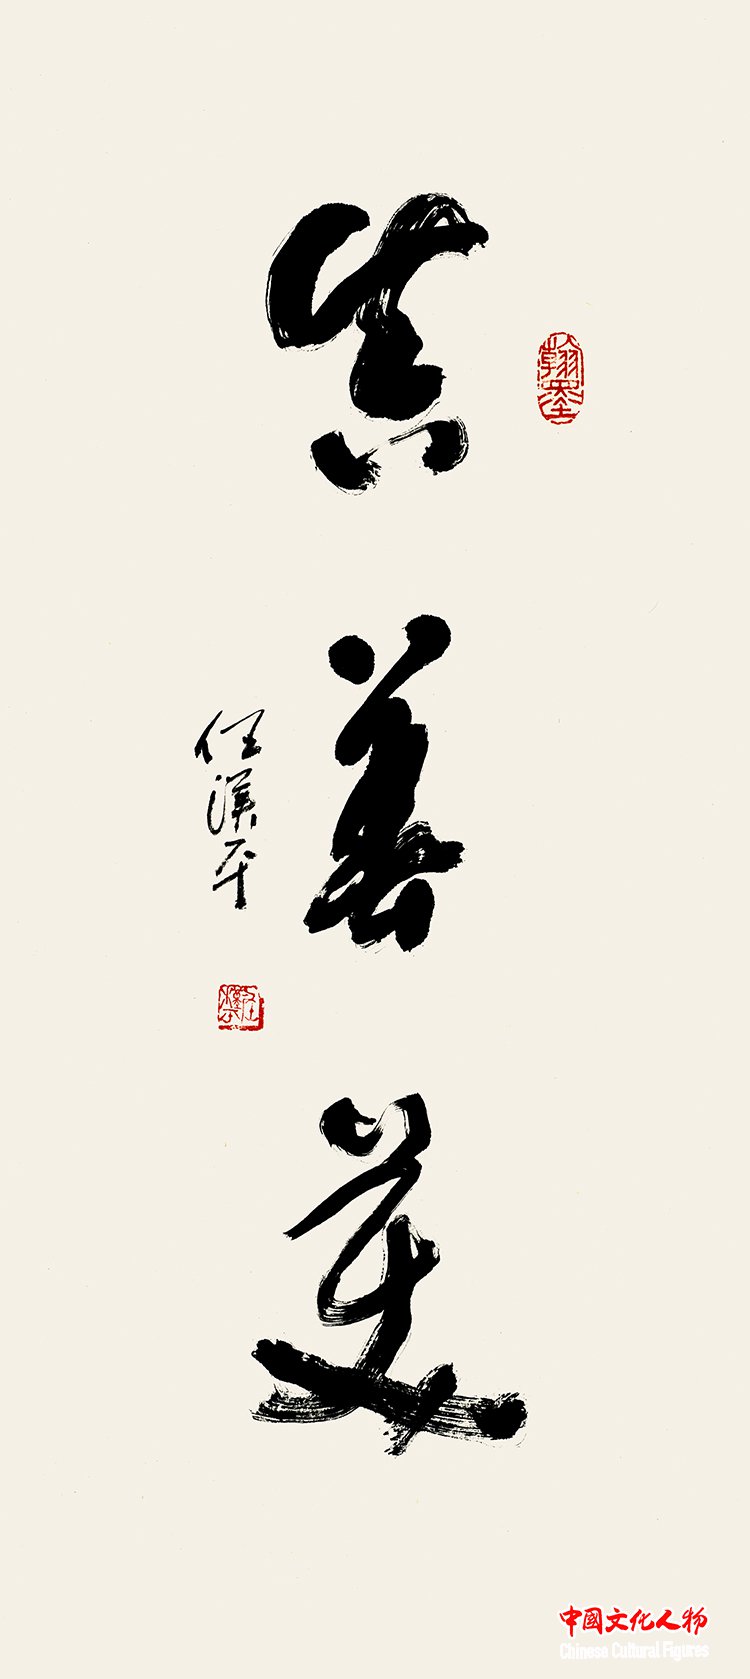 真善美
翰墨
任漢平
中國文化人物
Chinese Cultural Figures